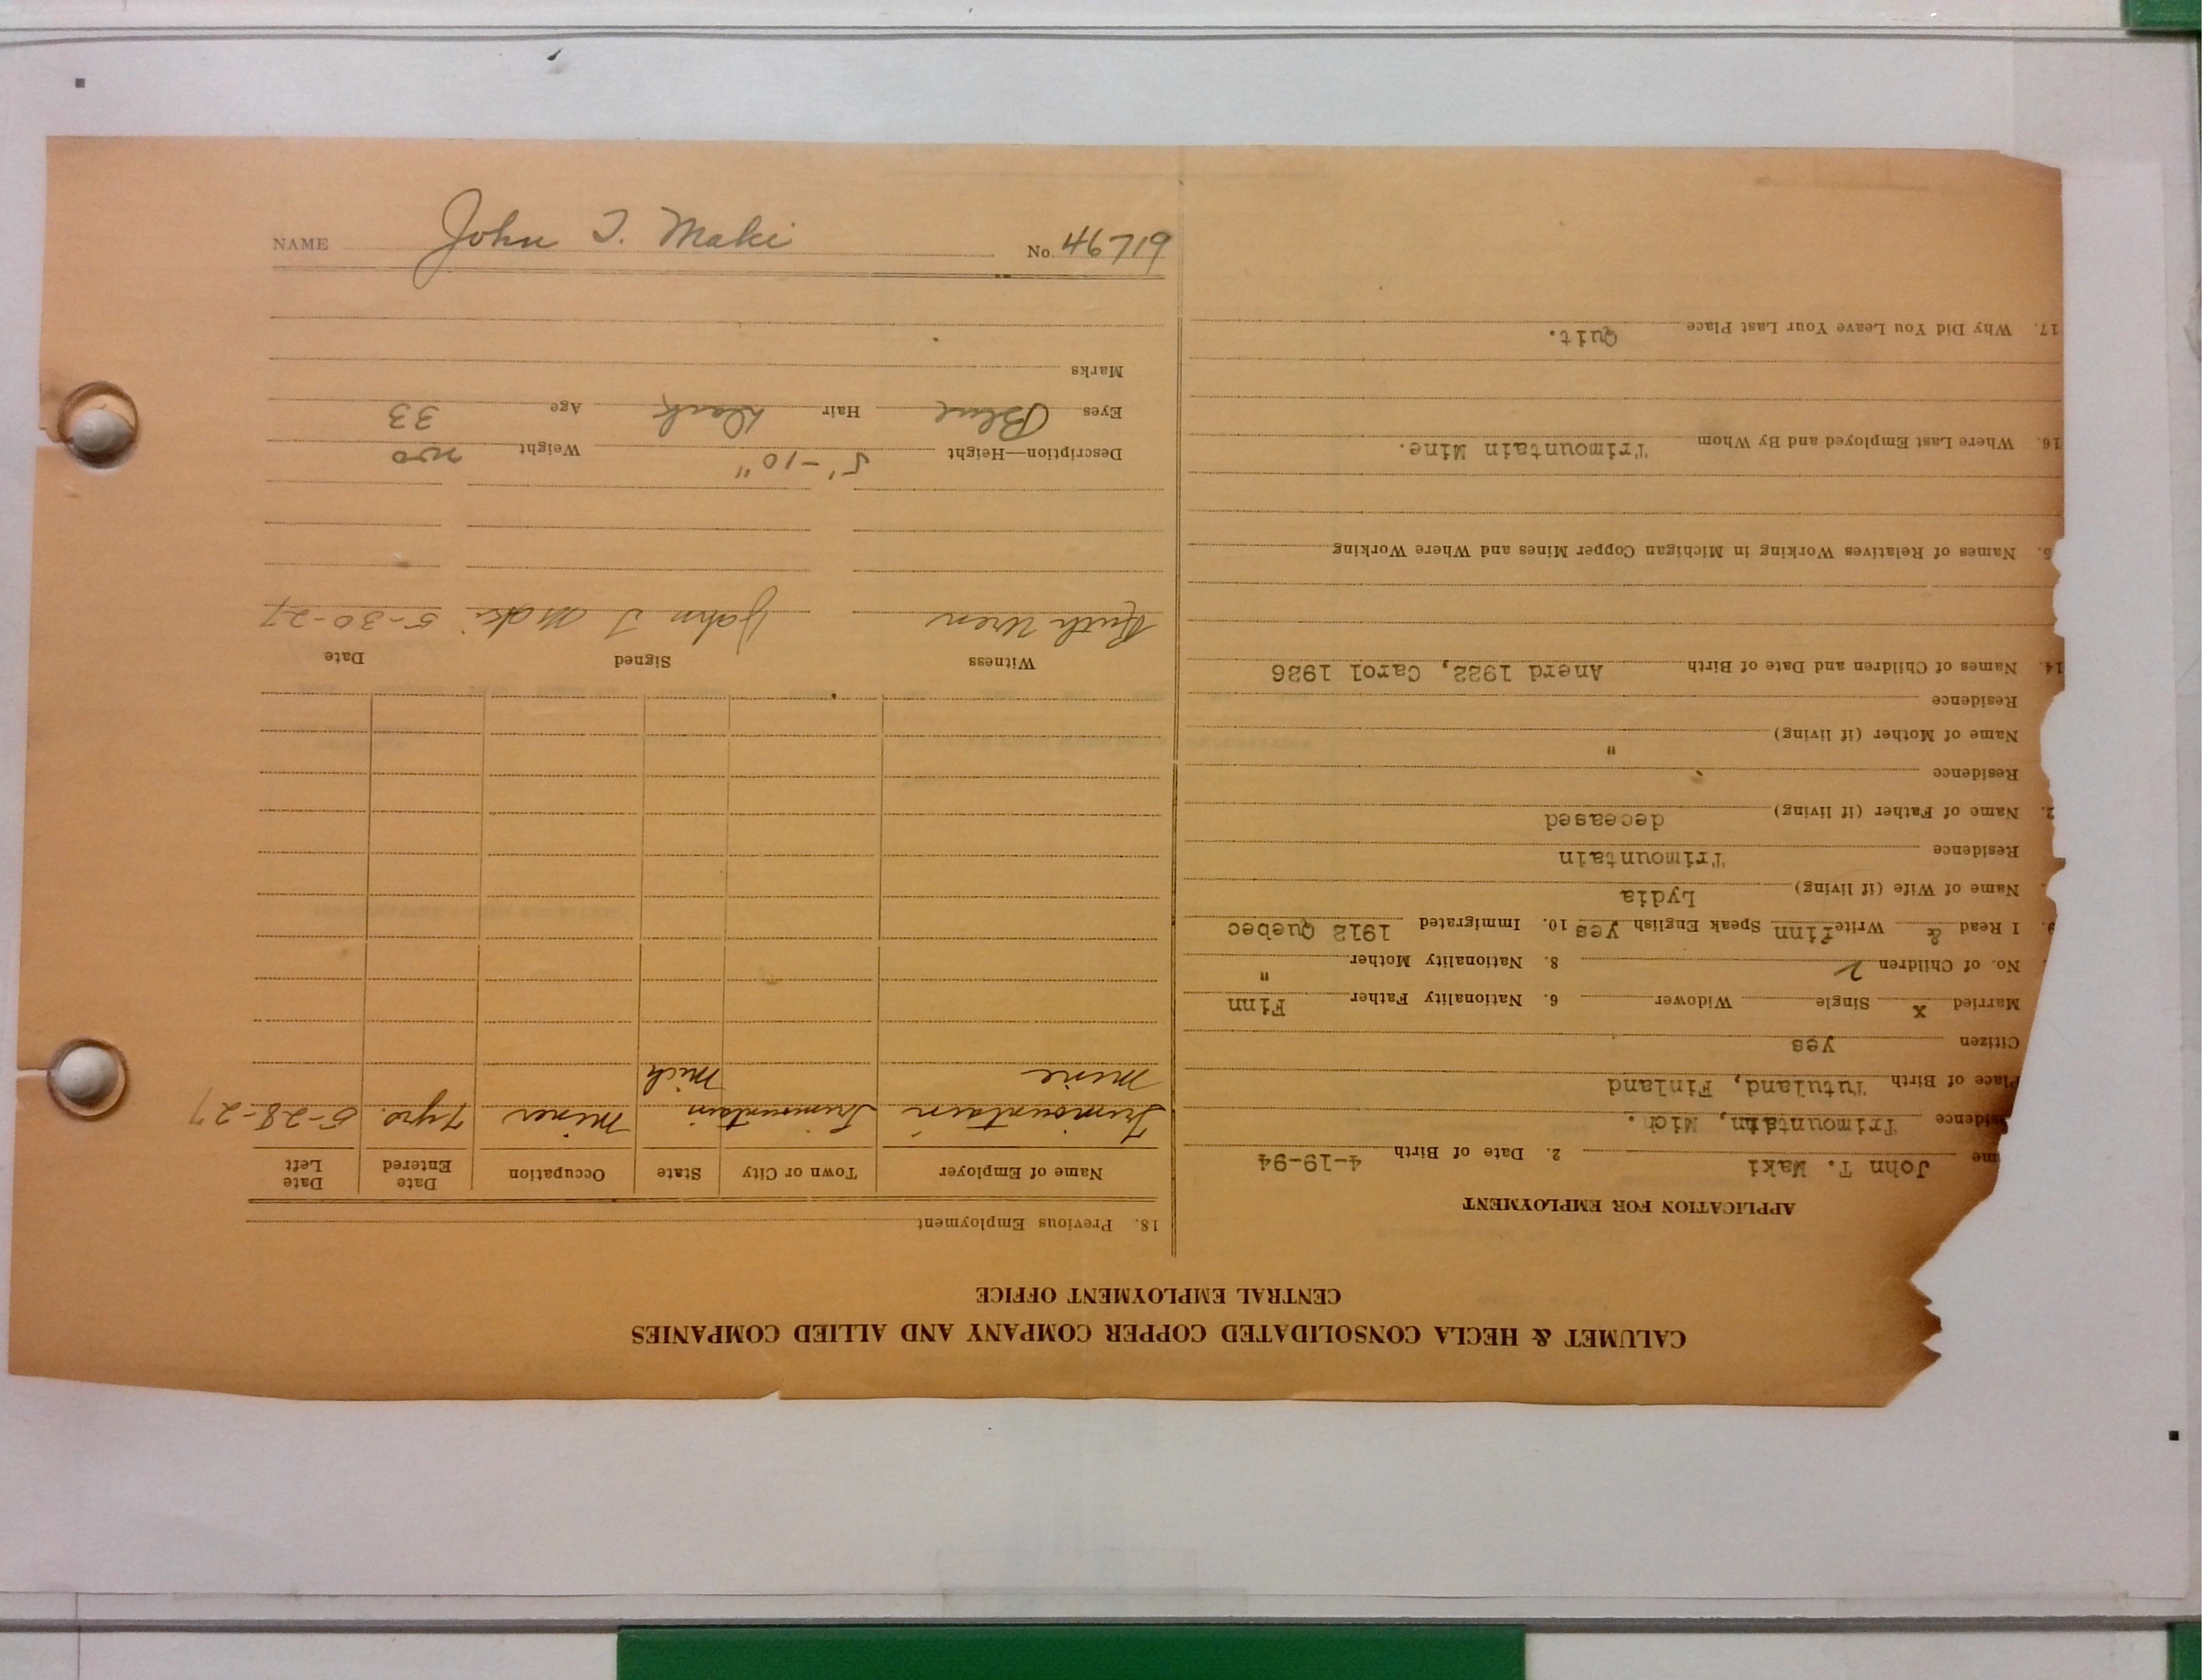 CALUMET & HECLA CONSOLIDATED COPPER COMPANY AND ALLIED COMPANIES
CENTRAL EMPLOYMENT OFFICE
APPLICATION FOR EMPLOYMENT
me John T. Maki 2. Date of Birth 4-19-94
sidence Trimountain, Mich.
Place of Birth Tutuland, Finland
Citizen yes
Married x Single Widower 6. Nationality Father Finn
No. of Children 2 8. Nationality Mother "
9. I Read & Write finn Speak English yes 10. Immigrated 1912 Quebec
Name of Wife (if living) Lydia
Residence Trimountain
2. Name of Father (if living) deceased
Residence
Name of Mother (if living) "
Residence
14. Names of Children and Date of Birth Anerd 1922, Carol 1926
5. Names of Relatives Working in Michigan Copper Mines and Where Working
16. Where Last Employed and By Whom Trimountain Mine.
17. Why Did You Leave Your Last Place Quit.
18. Previous Employment
Name of Employer Town or City State Occupation Date Entered Date Left
Trimountain Trimountain Miner 7 yrs. 5-28-27
Mine Mich
Witness Signed Date
Ruth Uren John T Maki 5-30-27
Description—Height 5'-10" Weight
Eyes Blue Hair Dark Age 33
Marks
NAME John T. Maki No. 46719